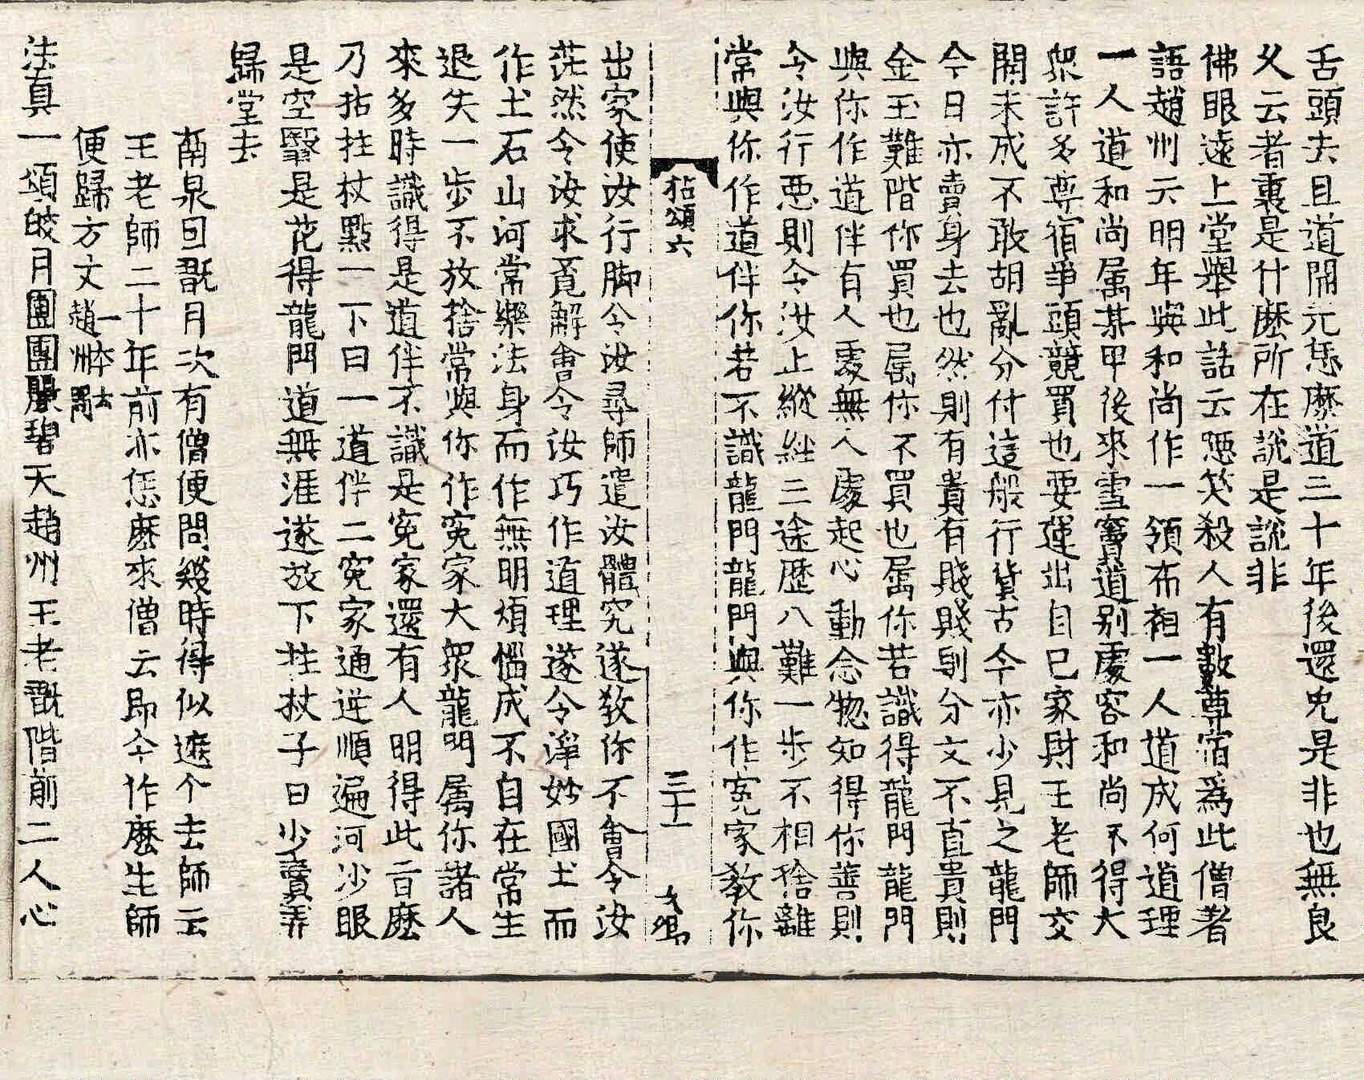 舌頭去且道開元恁麽道三十年後還免是非也無良
久云者裏是什麽所在說是說非
佛眼遠上堂舉此話云㤙笑殺人有數尊宿爲此僧著
語趙州云明年與和尚作一領布衫一人道成何道理
一人道和尚属某甲後來雪竇道别處容和尚不得大
衆許多尊宿爭頭競買也要運出自己家財王老師交
開未成不敢胡亂分付這般行貨古今亦少見之龍門
今日亦賣身去也然則有貴有賤賤則分文不直貴則
金玉難階你買也属你不買也属你若識得龍門龍門
與你作道伴有人處無人處起心動念惣知得你善則
令汝行惡則令汝上縱經三途歷八難一步不相捨離
常與你作道伴你若不識龍門龍門與你作寃家敎你
拈頌六 三十一
出家使汝行脚令汝尋師遣汝體究遂敎你不會令汝
茫然令汝求覓解會令汝巧作道理遂令淨妙國土而
作土石山河常樂法身而作無明煩惱成不自在常生
退失一步不放捨常與你作寃家大衆龍門属你諸人
來多時識得是道伴不識是寃家還有人明得此㫖麽
乃拈拄杖點一下曰一道伴二寃家通逆順遍河沙眼
是空翳是花得龍門道無涯遂放下拄杖子曰少賣弄
歸堂去
南泉因翫月次有僧便問幾時得似遮个去師云
王老師二十年前亦恁麽來僧云即今作麽生師
便歸方丈一本云趙州問
法真一頌皎月團團𪠘碧天趙州王老翫階前二人心